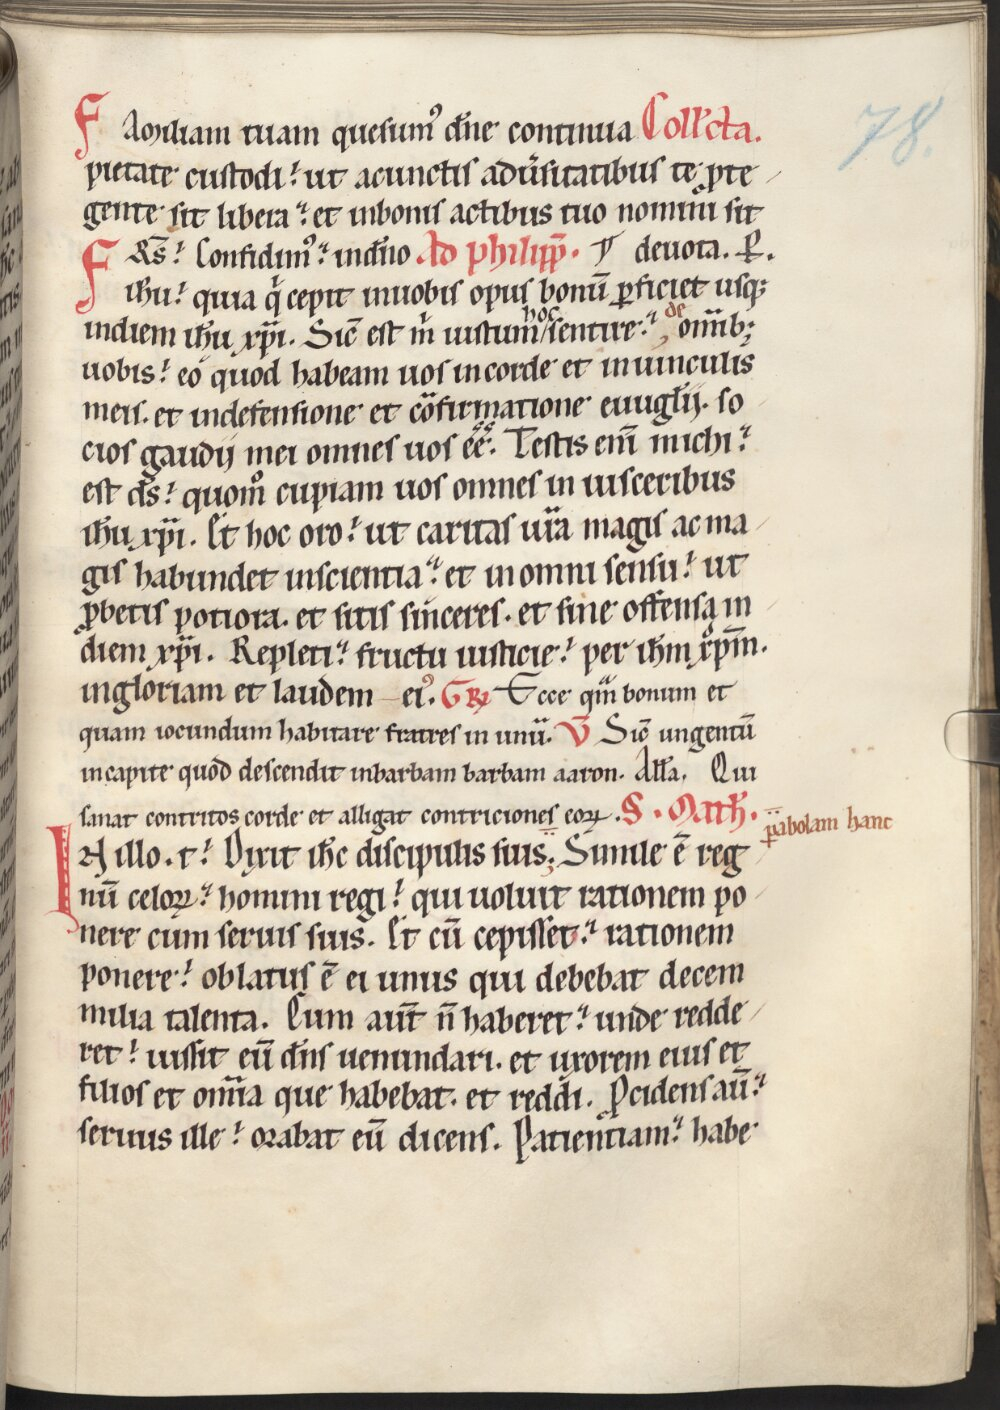 78.
FAmiliam tuam quesumꝰ dn̄e continua Collc̄ta.
pietate custodi ut acunctis adūsitatibus te ꝓte
gente sit libera et inbonis actibus tuo nomini sit
FRS̄ Confidimꝰ indn̄o Ad philipp̄. ¶ deuota. P̲.
ihu quia q̄ cepit inuobis opus bonū ꝑficiet usqꝫ
indiem ihu xp̄i. Sic̄ est m̄ iustum hoc sentire de om̄ibꝫ
uobis eo quod habeam uos incorde et inuinculis
meis. et indefensione et cōfirmatione euuglij. so
cios gaudij mei omnes uos ēē. Testis eni̅ michi
est ds̄ quom̊ cupiam uos omnes in uisceribus
ihu xp̄i. Et hoc oro ut caritas ur̄a magis ac ma
gis habundet inscientia et in omni sensu ut
ꝓbetis potiora. et sitis sinceres. et sine offensa in
diem xp̄i. Repleti fructu iusticie per ihm xp̄m.
ingloriam et laudem ei. GR̄ Ecce qm̄ bonum et
quam iocundum habitare fratres in unū. V̄ Sic̄ ungentū
incapite quod descendit inbarbam barbam aaron. Alla. Qui
sanat contritos corde et alligat contriciones eoꝝ. S. Math.
parabolam hanc
IN illo. t Dixit ihc discipulis suis; Simile ē reg
nū celoꝝ homini regi qui uoluit rationem po
nere cum seruis suis. Et cū cepisset rationem
ponere oblatus ē ei unus qui debebat decem
milia talenta. Cum aūt n̄ haberet unde redde
ret iussit eū dn̄s uenundari. et uxorem eius et
filios et om̄ia que habebat. et reddi. Pcidens aū
seruus ille orabat eū dicens. Patientiam habe